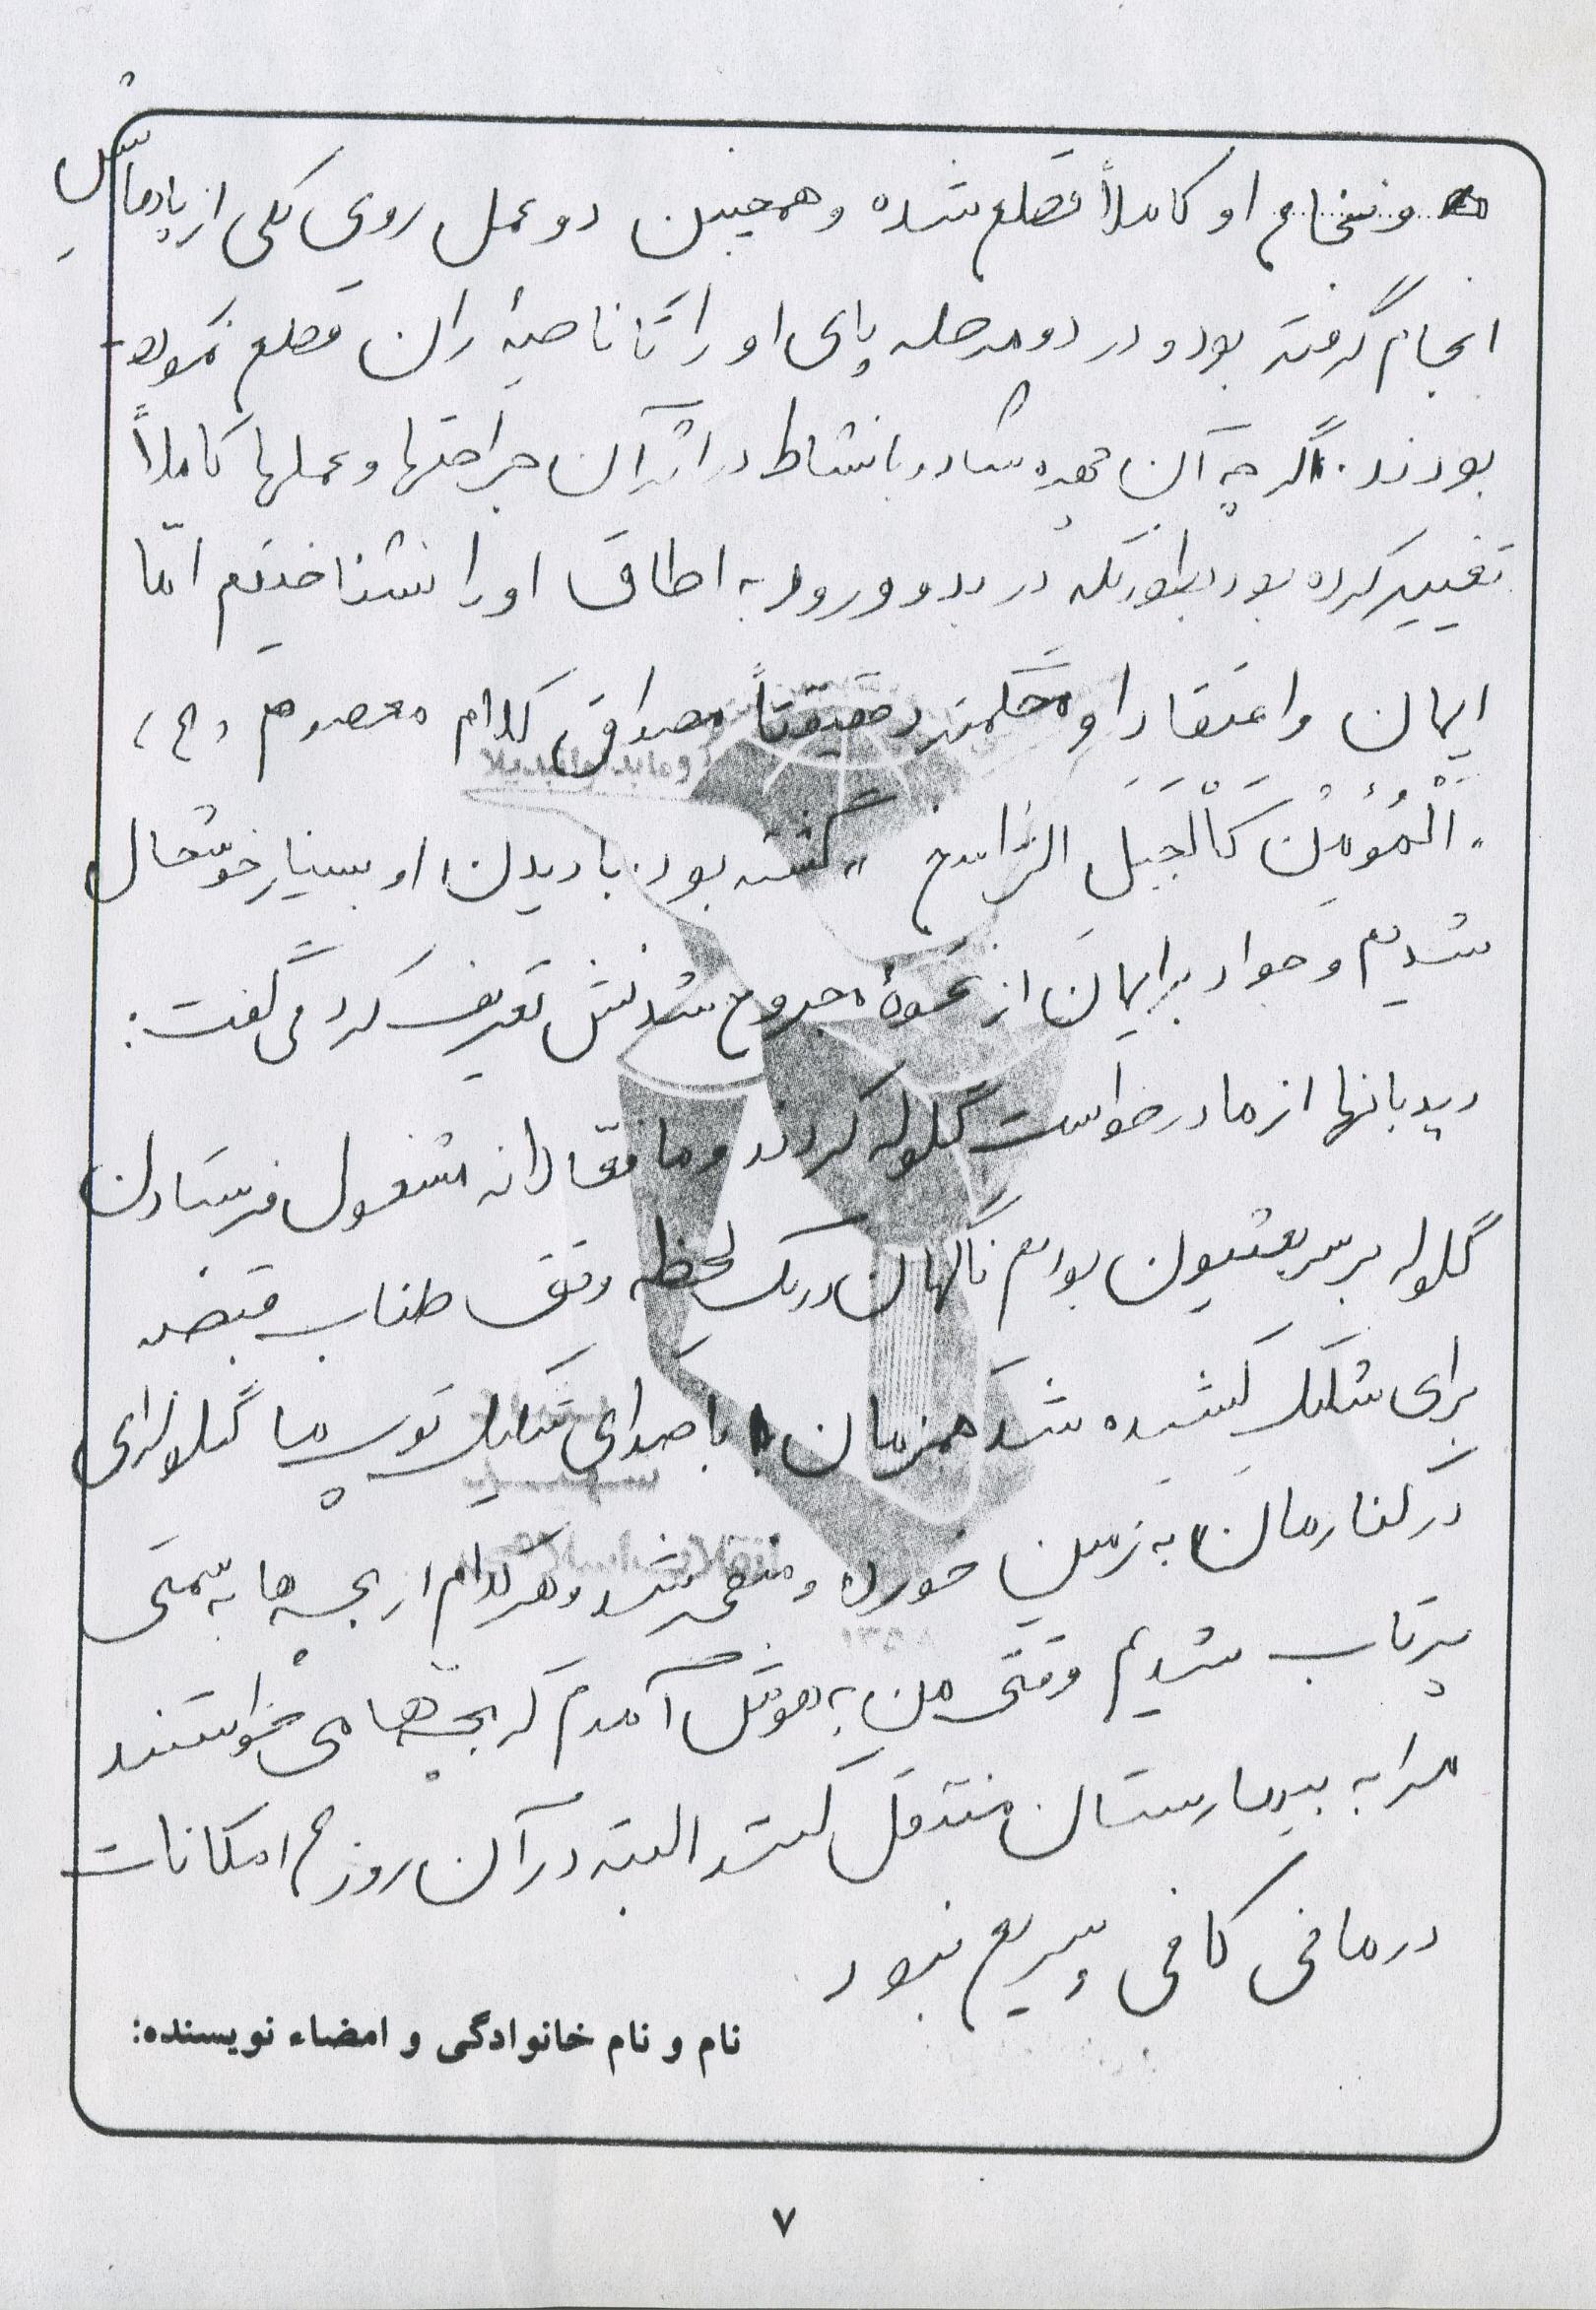 و نخاع او کاملاً قطع شده و همچنین دو عمل روی یکی از پاهاش
انجام گرفته بود و در دو مرحله پای او را تا ناحیهٔ ران قطع نموده
بودند. اگر چه آن چهره شاد و با نشاط در اثر آن جراحتها و عملها کاملاً
تغییر کرده بود بطوریکه در بدو ورود به اطاق او را نشناختیم امّا
ایمان و اعتقاد او محکمتر و حقیقتاً مصداق کلام معصوم (ع)
"اَلْمُؤمِنْ کَالْجَبَلِ الرّاسخ" گشته بود. با دیدن او بسیار خوشحال
شدیم و جواد برایمان از نحوهٔ مجروح شدنش تعریف کرد می گفت:
دیدبانها از ما درخواست گلوله کردند و ما فعالانه مشغول فرستادن
گلوله بر سر بعثیون بودیم ناگهان در یک لحظه وقتی طناب قبضه
برای شلیک کشیده شد همزمان با صدای شلیک توپ ما گلوله‌ای
در کنارمان به زمین خورد و منفجر شد و هر کدام از بچه ها به سمتی
پرتاب شدیم وقتی من به هوش آمدم که بچه ها می خواستند
مرا به بیمارستان منتقل کنند البته در آن روز هم امکانات
درمانی کافی و سریع نبود
نام و نام خانوادگی و امضاء نویسنده:
۷